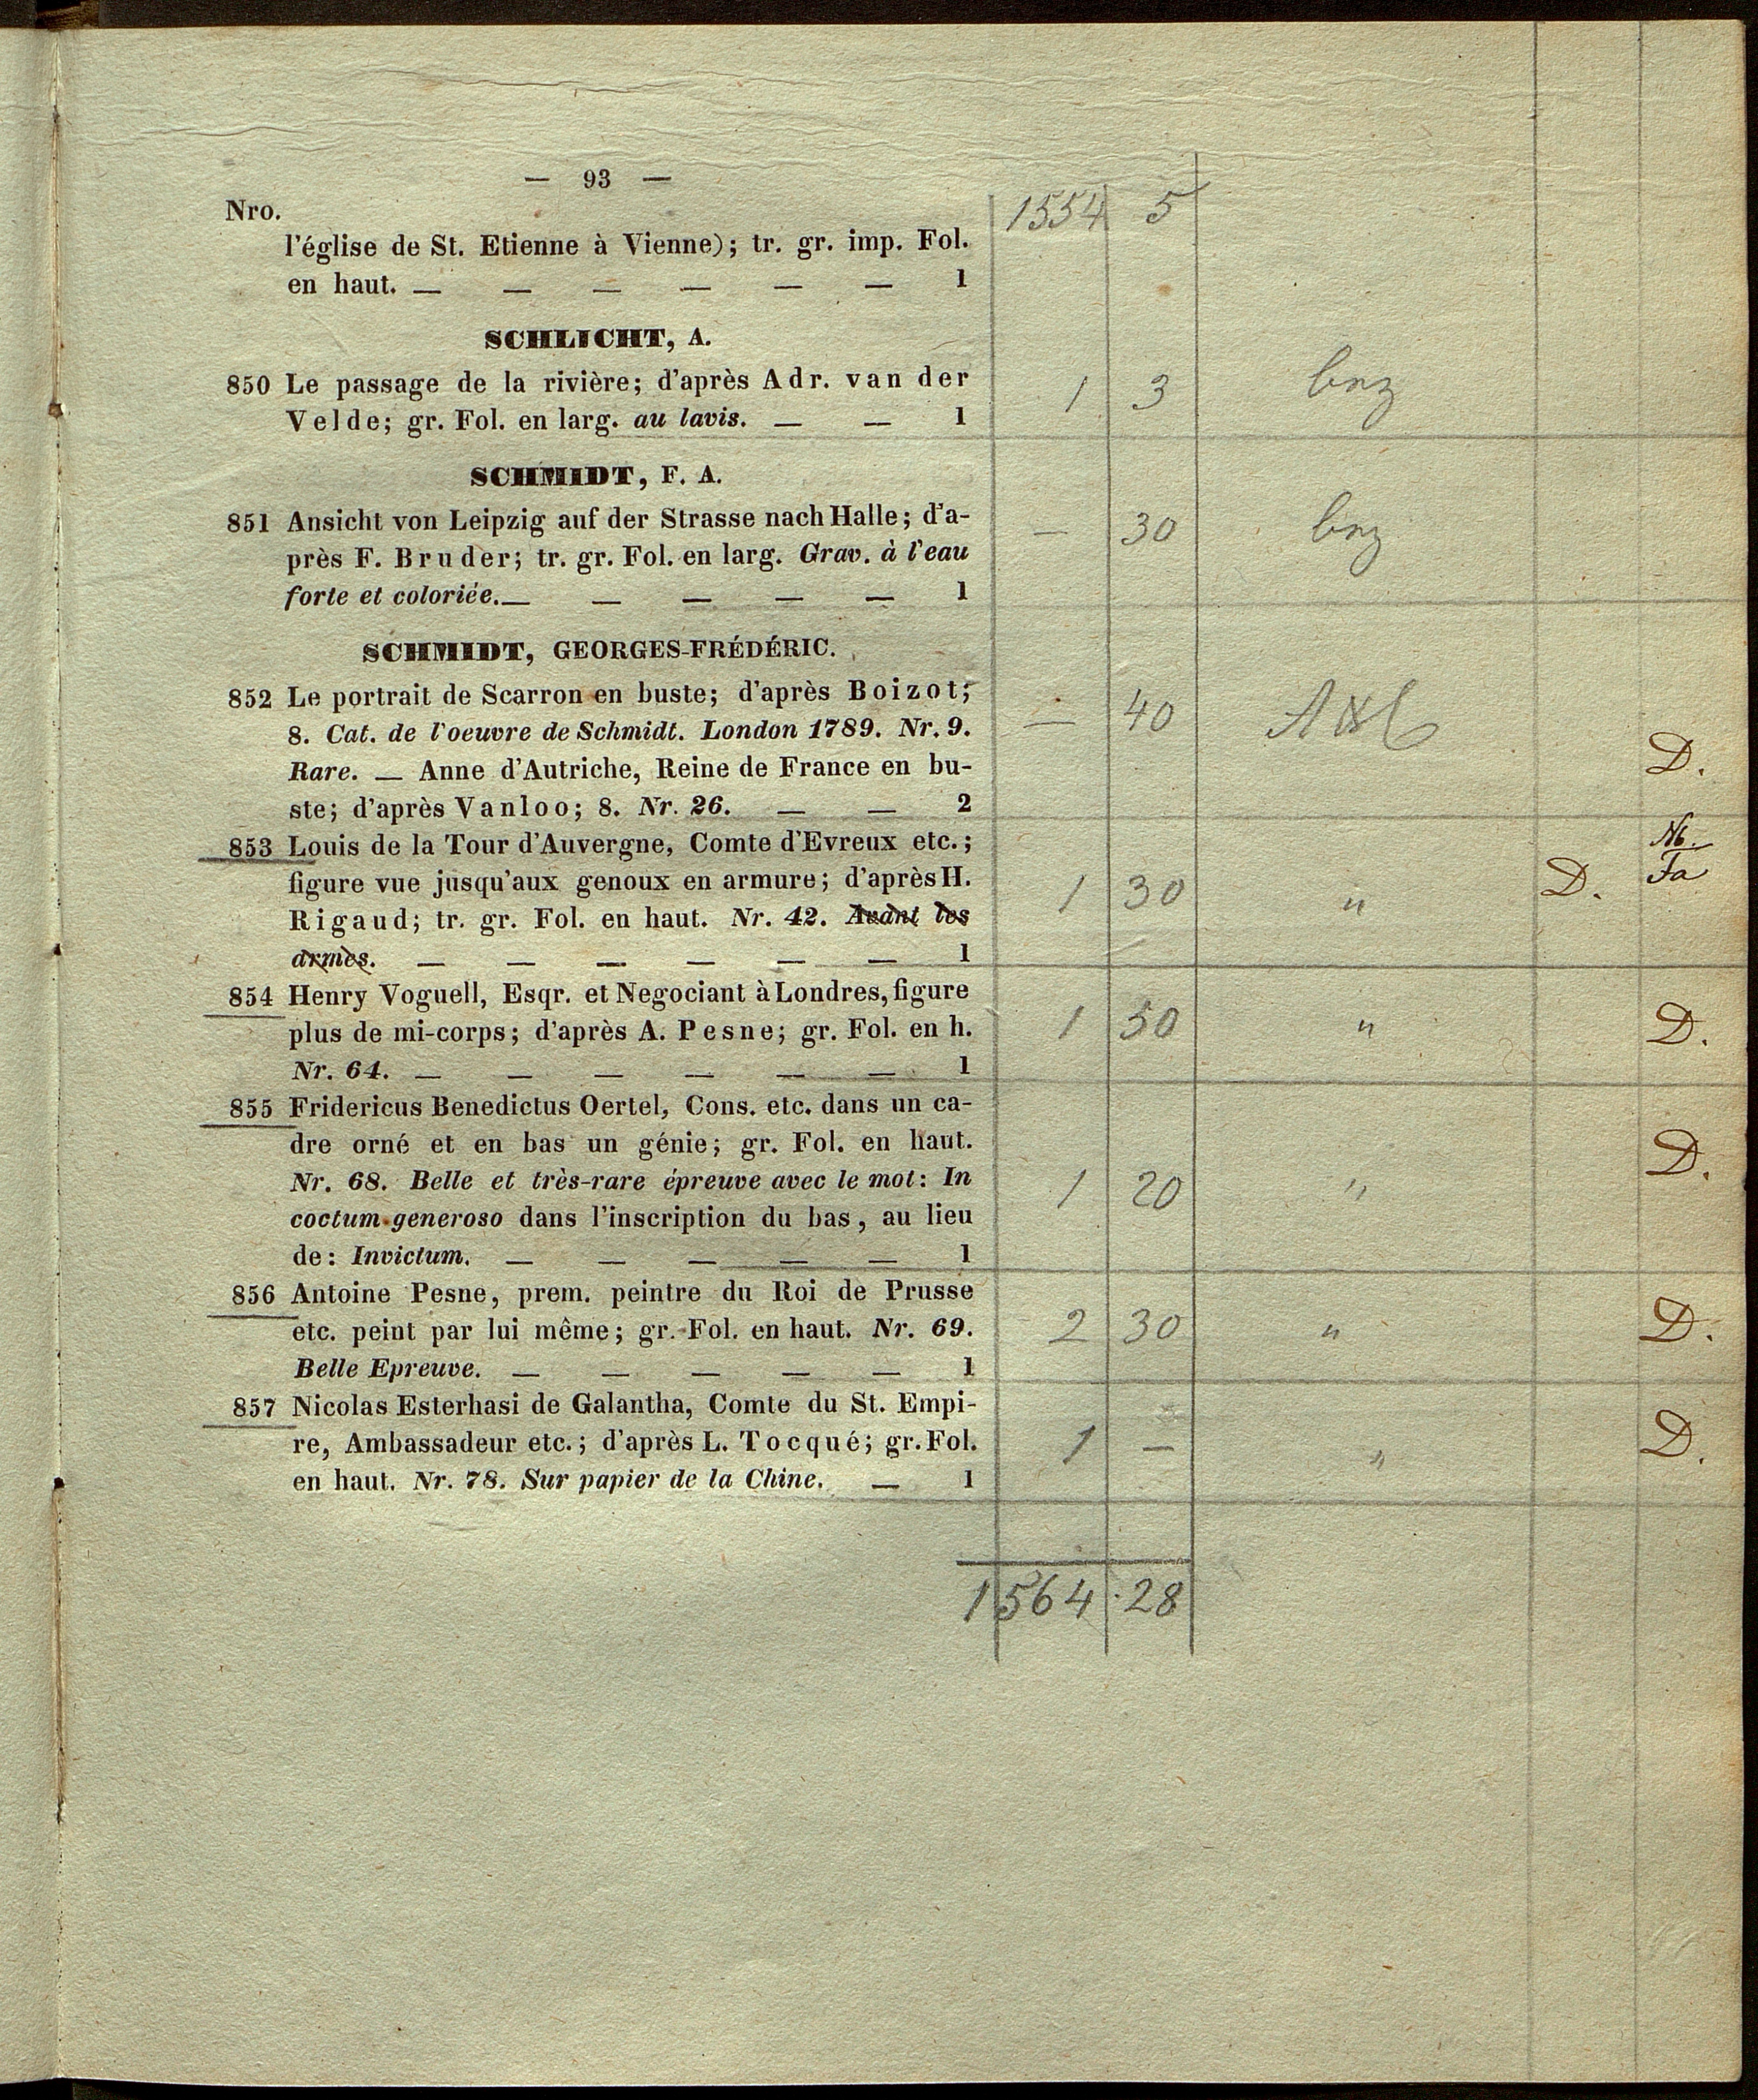 — 93 —
Nro.
1554 5
l'église de St. Etienne à Vienne); tr. gr. imp. Fol.
en haut. — — — — — — 1
SCHLICHT, A.
850 Le passage de la rivière; d'après Adr. van der
Velde; gr. Fol. en larg. au lavis. — — 1
1 3
SCHMIDT, F. A.
851 Ansicht von Leipzig auf der Strasse nach Halle; d'a-
près F. Bruder; tr. gr. Fol. en larg. Grav. à l'eau
forte et coloriée. — — — — — 1
— 30
SCHMIDT, GEORGES-FRÉDÉRIC.
852 Le portrait de Scarron en buste; d'après Boizot;
8. Cat. de l'oeuvre de Schmidt. London 1789. Nr. 9.
Rare. — Anne d'Autriche, Reine de France en bu-
ste; d'après Vanloo; 8. Nr. 26. — — 2
— 40 D.
853 Louis de la Tour d'Auvergne, Comte d'Evreux etc.;
figure vue jusqu'aux genoux en armure; d'après H.
Rigaud; tr. gr. Fol. en haut. Nr. 42. Avant les
armes. — — — — — — 1
1 30 " D. Nb.
Fa
854 Henry Voguell, Esqr. et Negociant à Londres, figure
plus de mi-corps; d'après A. Pesne; gr. Fol. en h.
Nr. 64. — — — — — — 1
1 50 " D.
855 Fridericus Benedictus Oertel, Cons. etc. dans un ca-
dre orné et en bas un génie; gr. Fol. en haut.
Nr. 68. Belle et très-rare épreuve avec le mot: In
coctum generoso dans l'inscription du bas, au lieu
de: Invictum. — — — — — 1
1 20 " D.
856 Antoine Pesne, prem. peintre du Roi de Prusse
etc. peint par lui même; gr. Fol. en haut. Nr. 69.
Belle Epreuve. — — — — — 1
2 30 " D.
857 Nicolas Esterhasi de Galantha, Comte du St. Empi-
re, Ambassadeur etc.; d'après L. Tocqué; gr. Fol.
en haut. Nr. 78. Sur papier de la Chine. — 1
1 — " D.
1564 · 28